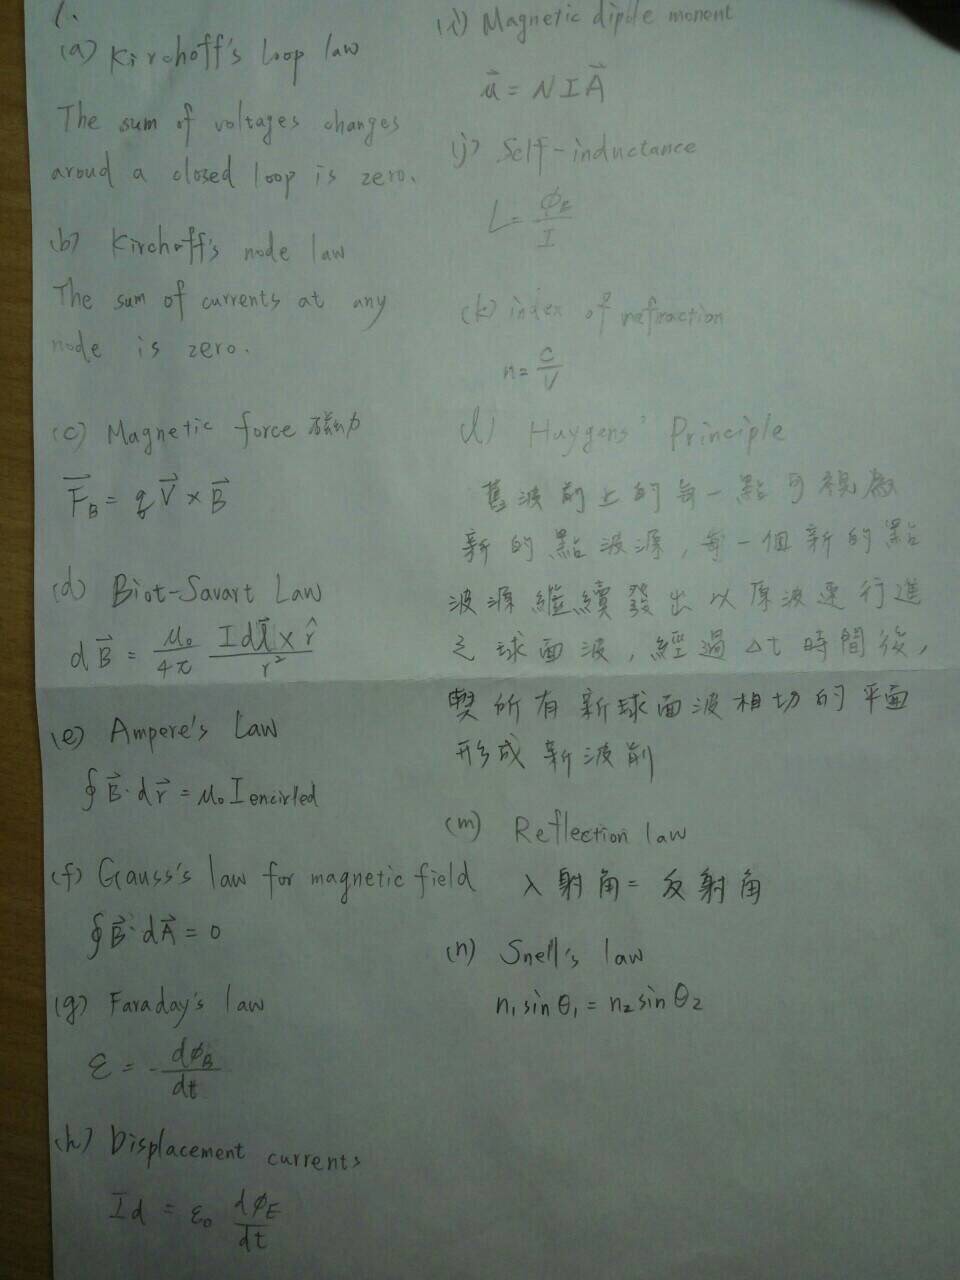 1.
(a) Kirchoff's loop law
The sum of voltages changes
aroud a closed loop is zero.
(b) Kirchoff's node law
The sum of currents at any
node is zero.
(c) Magnetic force 磁力
F⃗_B = q V⃗ × B⃗
(d) Biot-Savart Law
dB⃗ = μ₀/4π Idl⃗ × r̂/r²
(e) Ampere's Law
∮ B⃗·dr⃗ = μ₀ I encirled
(f) Gauss's law for magnetic field
∮ B⃗·dA⃗ = 0
(g) Faraday's law
ε = -dϕ_B/dt
(h) Displacement currents
Id = ε₀ dϕ_E/dt
(i) Magnetic dipole monent
u⃗ = NIA⃗
(j) Self-inductance
L = ϕ_E/I
(k) index of refraction
n = c/v
(l) Huygens' Principle
舊波前上的每一點可視為
新的點波源,每一個新的點
波源繼續發出以原波速行進
之球面波,經過Δt時間後,
與所有新球面波相切的平面
形成新波前
(m) Reflection law
入射角 = 反射角
(n) Snell's law
n₁sinθ₁ = n₂sinθ₂